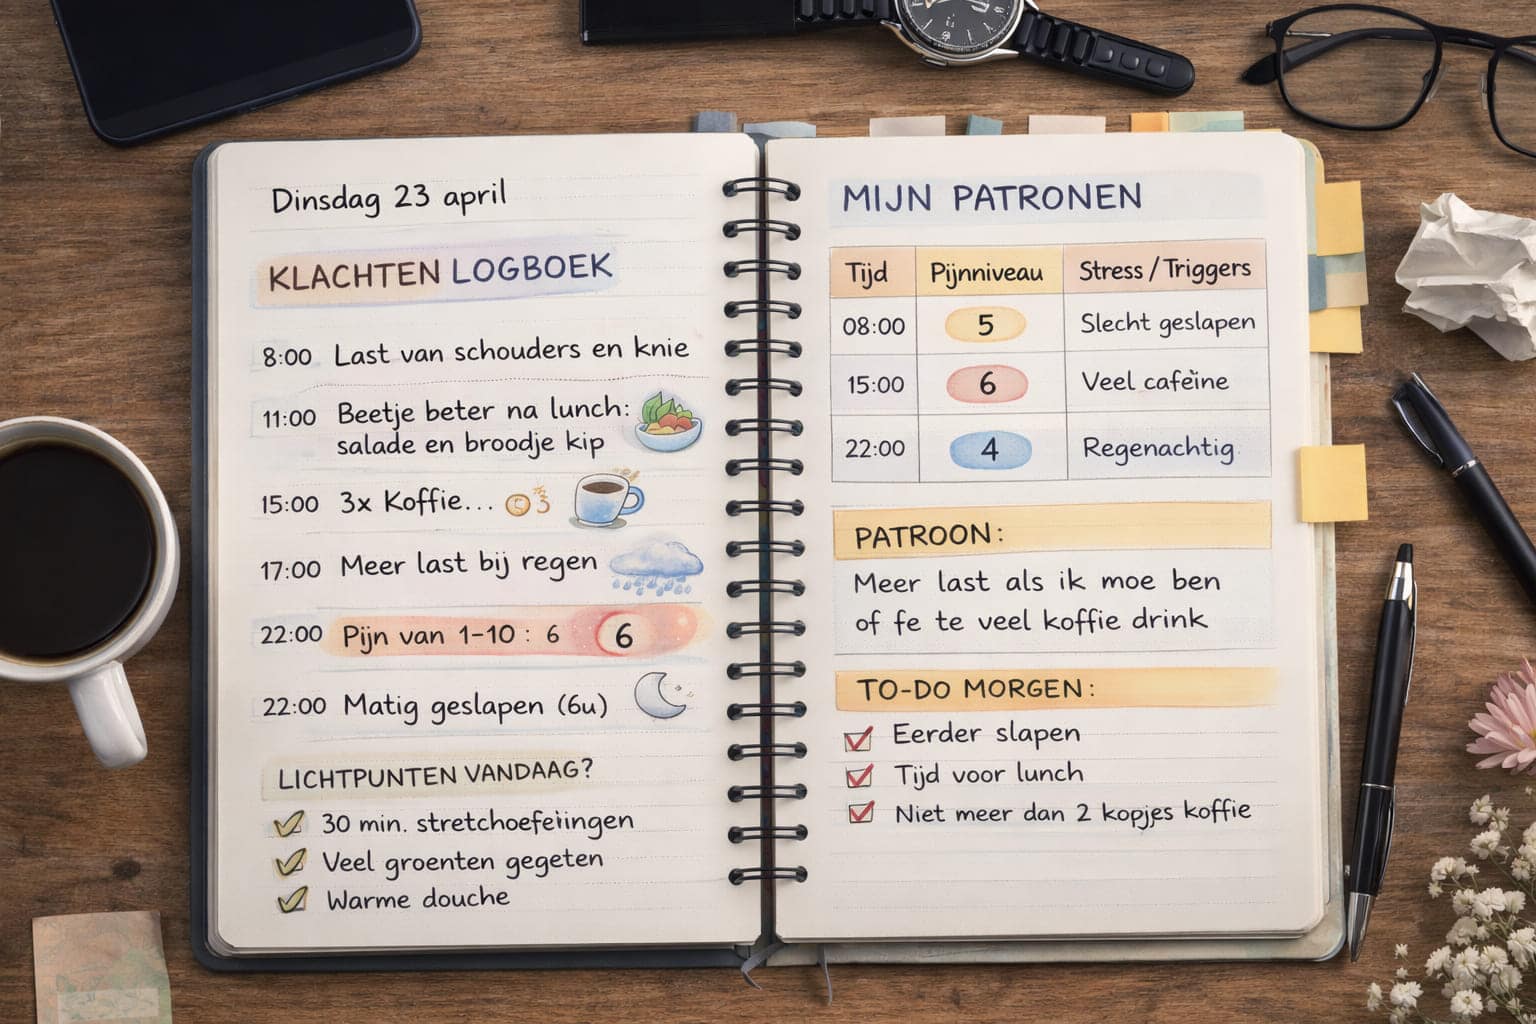 Dinsdag 23 april
KLACHTEN LOGBOEK
8:00 Last van schouders en knie
11:00 Beetje beter na lunch:
salade en broodje kip
15:00 3x Koffie...
17:00 Meer last bij regen
22:00 Pijn van 1-10 : 6 6
22:00 Matig geslapen (6u)
LICHTPUNTEN VANDAAG?
30 min. stretchoefeiingen
Veel groenten gegeten
Warme douche
MIJN PATRONEN
Tijd Pijnniveau Stress / Triggers
08:00 5 Slecht geslapen
15:00 6 Veel cafeïne
22:00 4 Regenachtig
PATROON:
Meer last als ik moe ben
of fe te veel koffie drink
TO-DO MORGEN:
Eerder slapen
Tijd voor lunch
Niet meer dan 2 kopjes koffie